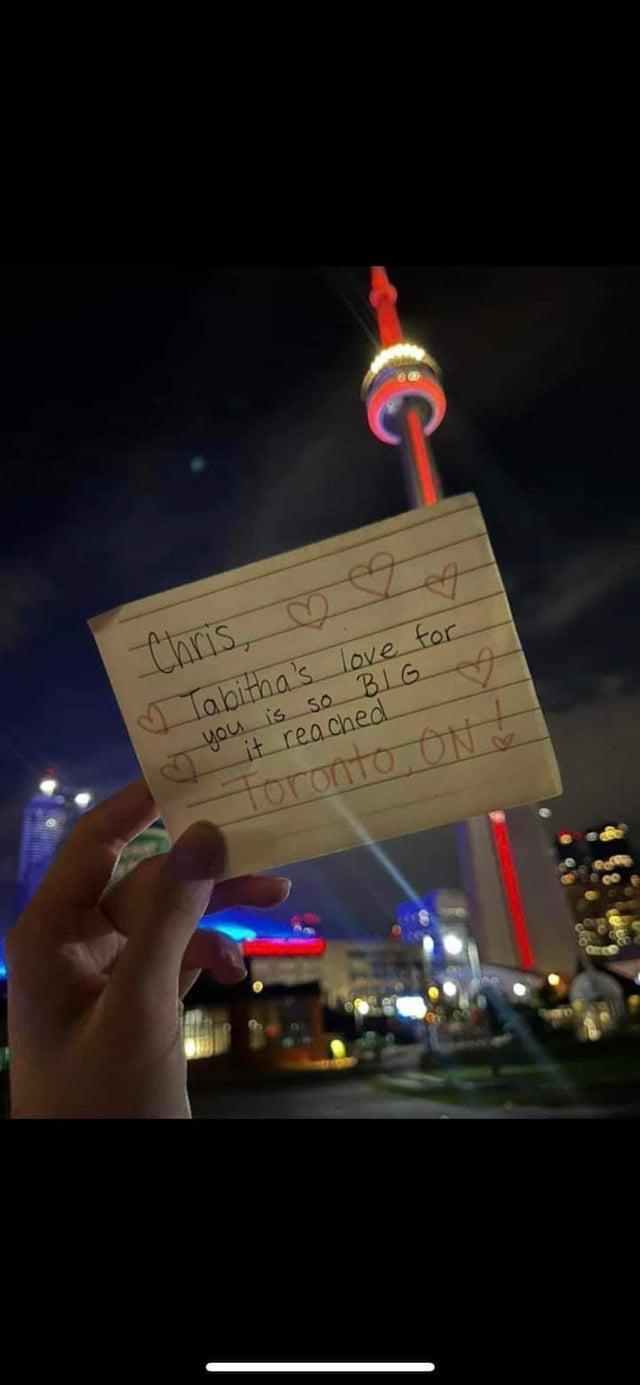 Chris,
Tabitha's love for
you is so BIG
it reached
Toronto, ON!